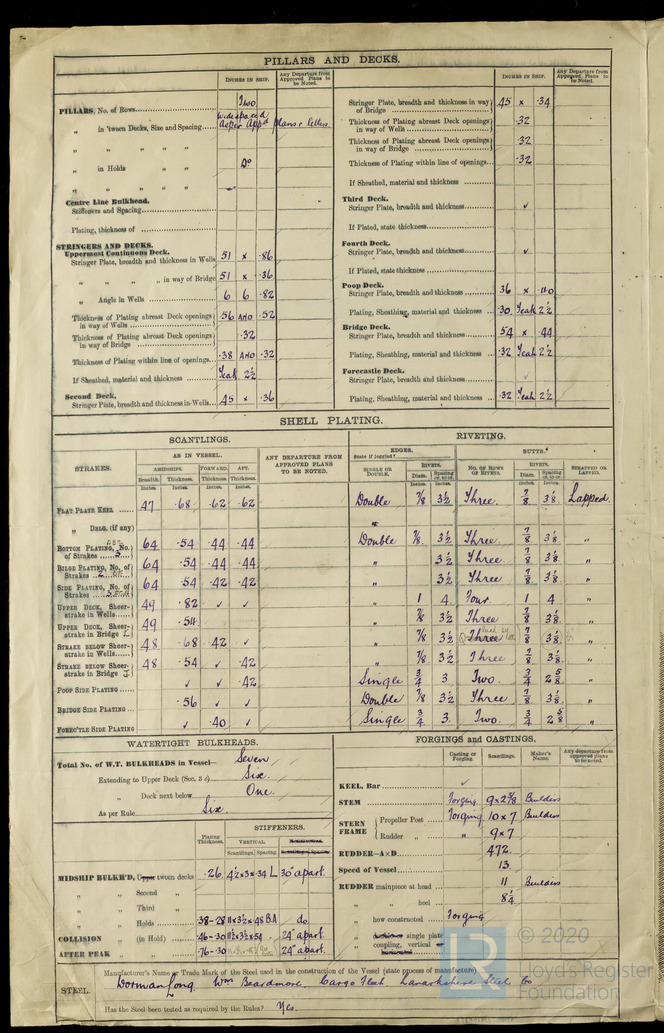 PILLARS AND DECKS.
INCHES IN SHIP. Any Departure from Approved Plans to be Noted.
PILLARS, No. of Rows Two
„ in 'tween Decks, Size and Spacing widespaced as per App'd plans & letters
„ „ „ „ „
„ in Holds „ „ Do
„ „ „ „ „
Centre Line Bulkhead.
Stiffeners and Spacing
Plating, thickness of
STRINGERS AND DECKS.
Uppermost Continuous Deck.
Stringer Plate, breadth and thickness in Wells 51 x .86
„ „ „ „ in way of Bridge 51 x .36
„ Angle in Wells 6 6 .82
Thickness of Plating abreast Deck openings in way of Wells .56 AND .52
Thickness of Plating abreast Deck openings in way of Bridge .32
Thickness of Plating within line of openings .38 AND .32
If Sheathed, material and thickness Teak 2½
Second Deck.
Stringer Plate, breadth and thickness in Wells 45 x .36
INCHES IN SHIP. Any Departure from Approved Plans to be Noted.
Stringer Plate, breadth and thickness in way of Bridge 45 x .34
Thickness of Plating abreast Deck openings in way of Wells .32
Thickness of Plating abreast Deck openings in way of Bridge .32
Thickness of Plating within line of openings .32
If Sheathed, material and thickness
Third Deck.
Stringer Plate, breadth and thickness ✓
If Plated, state thickness
Fourth Deck.
Stringer Plate, breadth and thickness ✓
If Plated, state thickness
Poop Deck.
Stringer Plate, breadth and thickness 36 x .40
Plating, Sheathing, material and thickness .30 Teak 2½
Bridge Deck.
Stringer Plate, breadth and thickness 54 x .44
Plating, Sheathing, material and thickness .32 Teak 2½
Forecastle Deck.
Stringer Plate, breadth and thickness ✓
Plating, Sheathing, material and thickness .32 Teak 2½
SHELL PLATING.
SCANTLINGS. RIVETING.
STRAKES. AS IN VESSEL. ANY DEPARTURE FROM APPROVED PLANS TO BE NOTED. EDGES. BUTTS.
AMIDSHIPS. FORWARD. AFT. State if joggled? RIVETS. No. OF ROWS OF RIVETS. RIVETS. STRAPPED OR LAPPED.
Breadth. Thickness. Thickness. Thickness. SINGLE OR DOUBLE. Diam. Spacing cr. to cr. Diam. Spacing cr. to cr.
Inches. Inches. Inches. Inches. Inches. Inches. Inches. Inches.
FLAT PLATE KEEL 47 .68 .62 .62 Double 7/8 3½ Three 7/8 3⅛ Lapped.
„ DBLG. (if any)
BOTTOM PLATING, No. of Strakes 64 .54 .44 .44 Double 7/8 3½ Three 7/8 3⅛ „
BILGE PLATING, No. of Strakes 64 .54 .44 .44 „ 3½ Three 7/8 3⅛ „
SIDE PLATING, No. of Strakes 64 .54 .42 .42 „ 3½ Three 7/8 3⅛ „
UPPER DECK, Sheerstrake in Wells 49 .82 ✓ ✓ „ 1 4 Four 1 4 „
UPPER DECK, Sheerstrake in Bridge 49 .54 „ 7/8 3½ Three 7/8 3⅛ „
STRAKE BELOW Sheerstrake in Wells 48 .68 .42 ✓ „ 7/8 3½ Three 7/8 3⅛ „
STRAKE BELOW Sheerstrake in Bridge 48 .54 ✓ .42 „ 7/8 3½ Three 7/8 3⅛ „
POOP SIDE PLATING ✓ ✓ .42 Single 3/4 3 Two 3/4 2⅝ „
BRIDGE SIDE PLATING .56 ✓ ✓ Double 7/8 3½ Three 7/8 3⅛ „
FOREC'TLE SIDE PLATING ✓ .40 ✓ Single 3/4 3 Two 3/4 2⅝ „
WATERTIGHT BULKHEADS.
Total No. of W.T. BULKHEADS in Vessel— Seven
Extending to Upper Deck (Sec. 3 c) Six
„ Deck next below One
As per Rule Six
Plating Thickness. STIFFENERS.
VERTICAL
Scantlings. Spacing
MIDSHIP BULKH'D, tween decks .26 4½x3x.34 L 30" apart
„ „ Second „
„ „ Third „
„ „ Holds .38-.28 11x3½x.48 B.A do
COLLISION „ (in Hold) .46-.30 11½x3½x.54 24" apart
AFTER PEAK „ „ .76-.30 24" apart
FORGINGS AND CASTINGS.
Casting or Forging. Scantlings. Maker's Name. Any departure from approved plans to be noted.
KEEL, Bar ✓
STEM Forging 9 x 2⅝ Builders
STERN FRAME Propeller Post Forging 10 x 7 Builders
Rudder „ „ 9 x 7
RUDDER—A x D 472
Speed of Vessel 13
RUDDER mainpiece at head 11 Builders
„ „ heel 8¼
„ how constructed Forging
„ single plate
„ coupling, vertical
STEEL. Manufacturer's Name or Trade Mark of the Steel used in the construction of the Vessel (state process of manufacture)
Dorman Long. Wm Beardmore. Cargo Fleet Lanarkshire Steel Co
Has the Steel been tested as required by the Rules? Yes.
LR © 2020
Lloyd's Register
Foundation